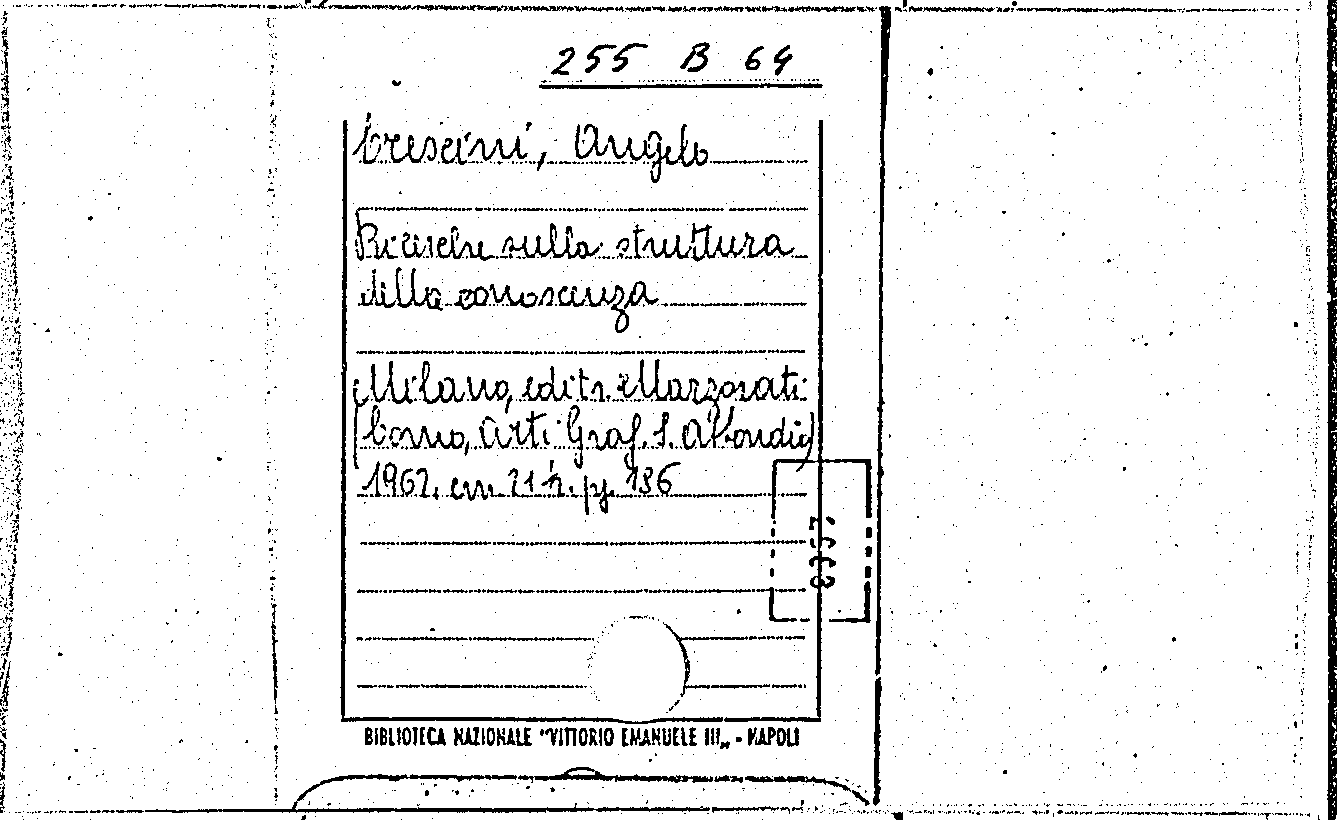 255 B 64
Crescini, Angelo
Ricerche sulla struttura
della conoscenza
Milano, editr. Marzorati
(Como, Arti Graf. S. Abbondio)
1962. cm. 21 ½. pp. 186
BIBLIOTECA NAZIONALE "VITTORIO EMANUELE III„ - NAPOLI